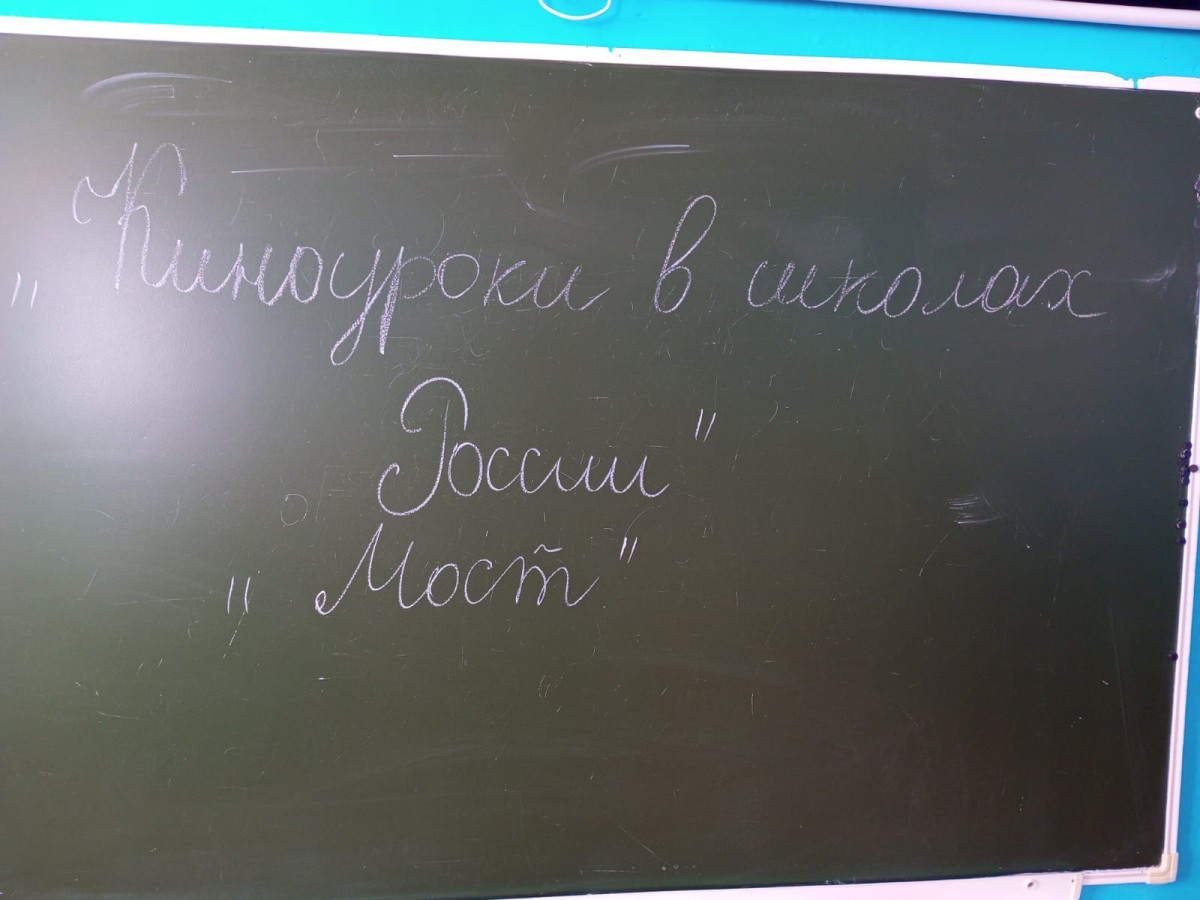 "Киноуроки в школах
России"
"Мост"